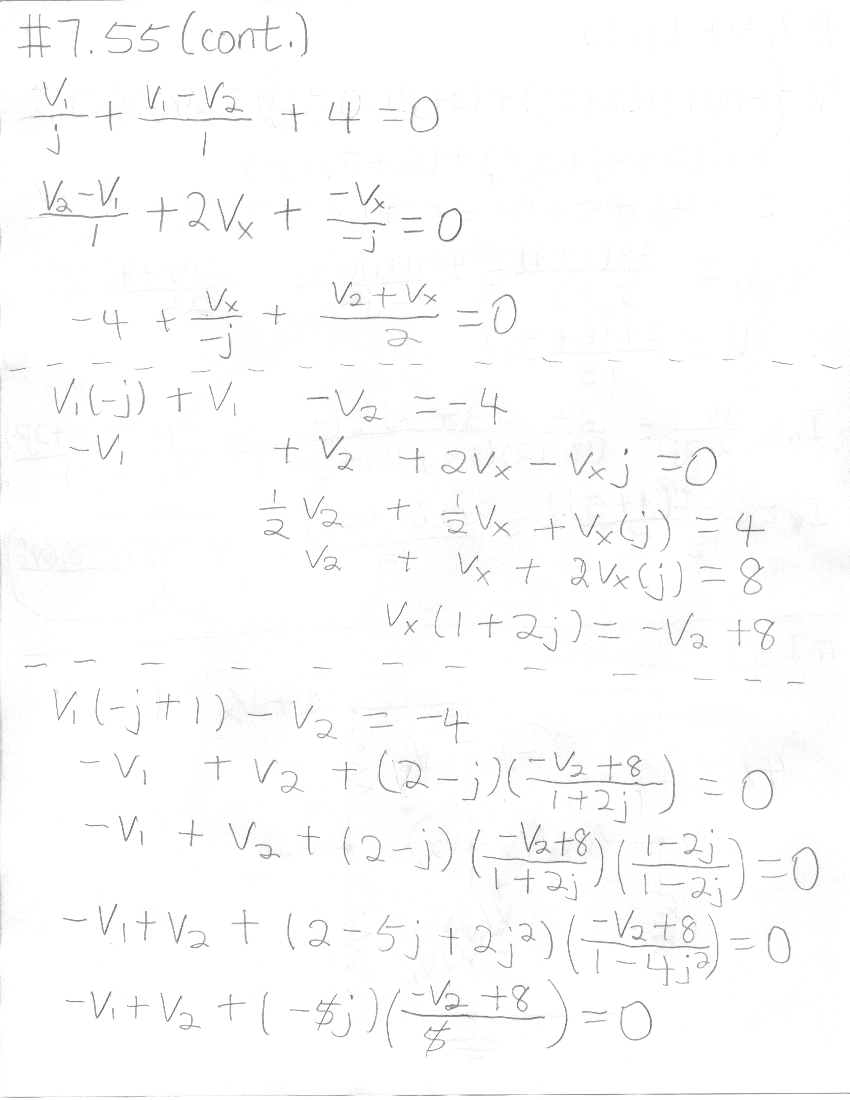 #7.55 (cont.)
V₁/j + (V₁-V₂)/1 + 4 = 0
(V₂-V₁)/1 + 2Vₓ + (-Vₓ)/(-j) = 0
-4 + Vₓ/(-j) + (V₂+Vₓ)/2 = 0
V₁(-j) + V₁ -V₂ = -4
-V₁ + V₂ + 2Vₓ - Vₓj = 0
½V₂ + ½Vₓ + Vₓ(j) = 4
V₂ + Vₓ + 2Vₓ(j) = 8
Vₓ(1+2j) = -V₂ +8
V₁(-j+1) - V₂ = -4
-V₁ + V₂ + (2-j)((-V₂+8)/(1+2j)) = 0
-V₁ + V₂ + (2-j)((-V₂+8)/(1+2j))((1-2j)/(1-2j)) = 0
-V₁+V₂ + (2-5j+2j²)((-V₂+8)/(1-4j²)) = 0
-V₁+V₂ + (-5j)((-V₂+8)/5) = 0